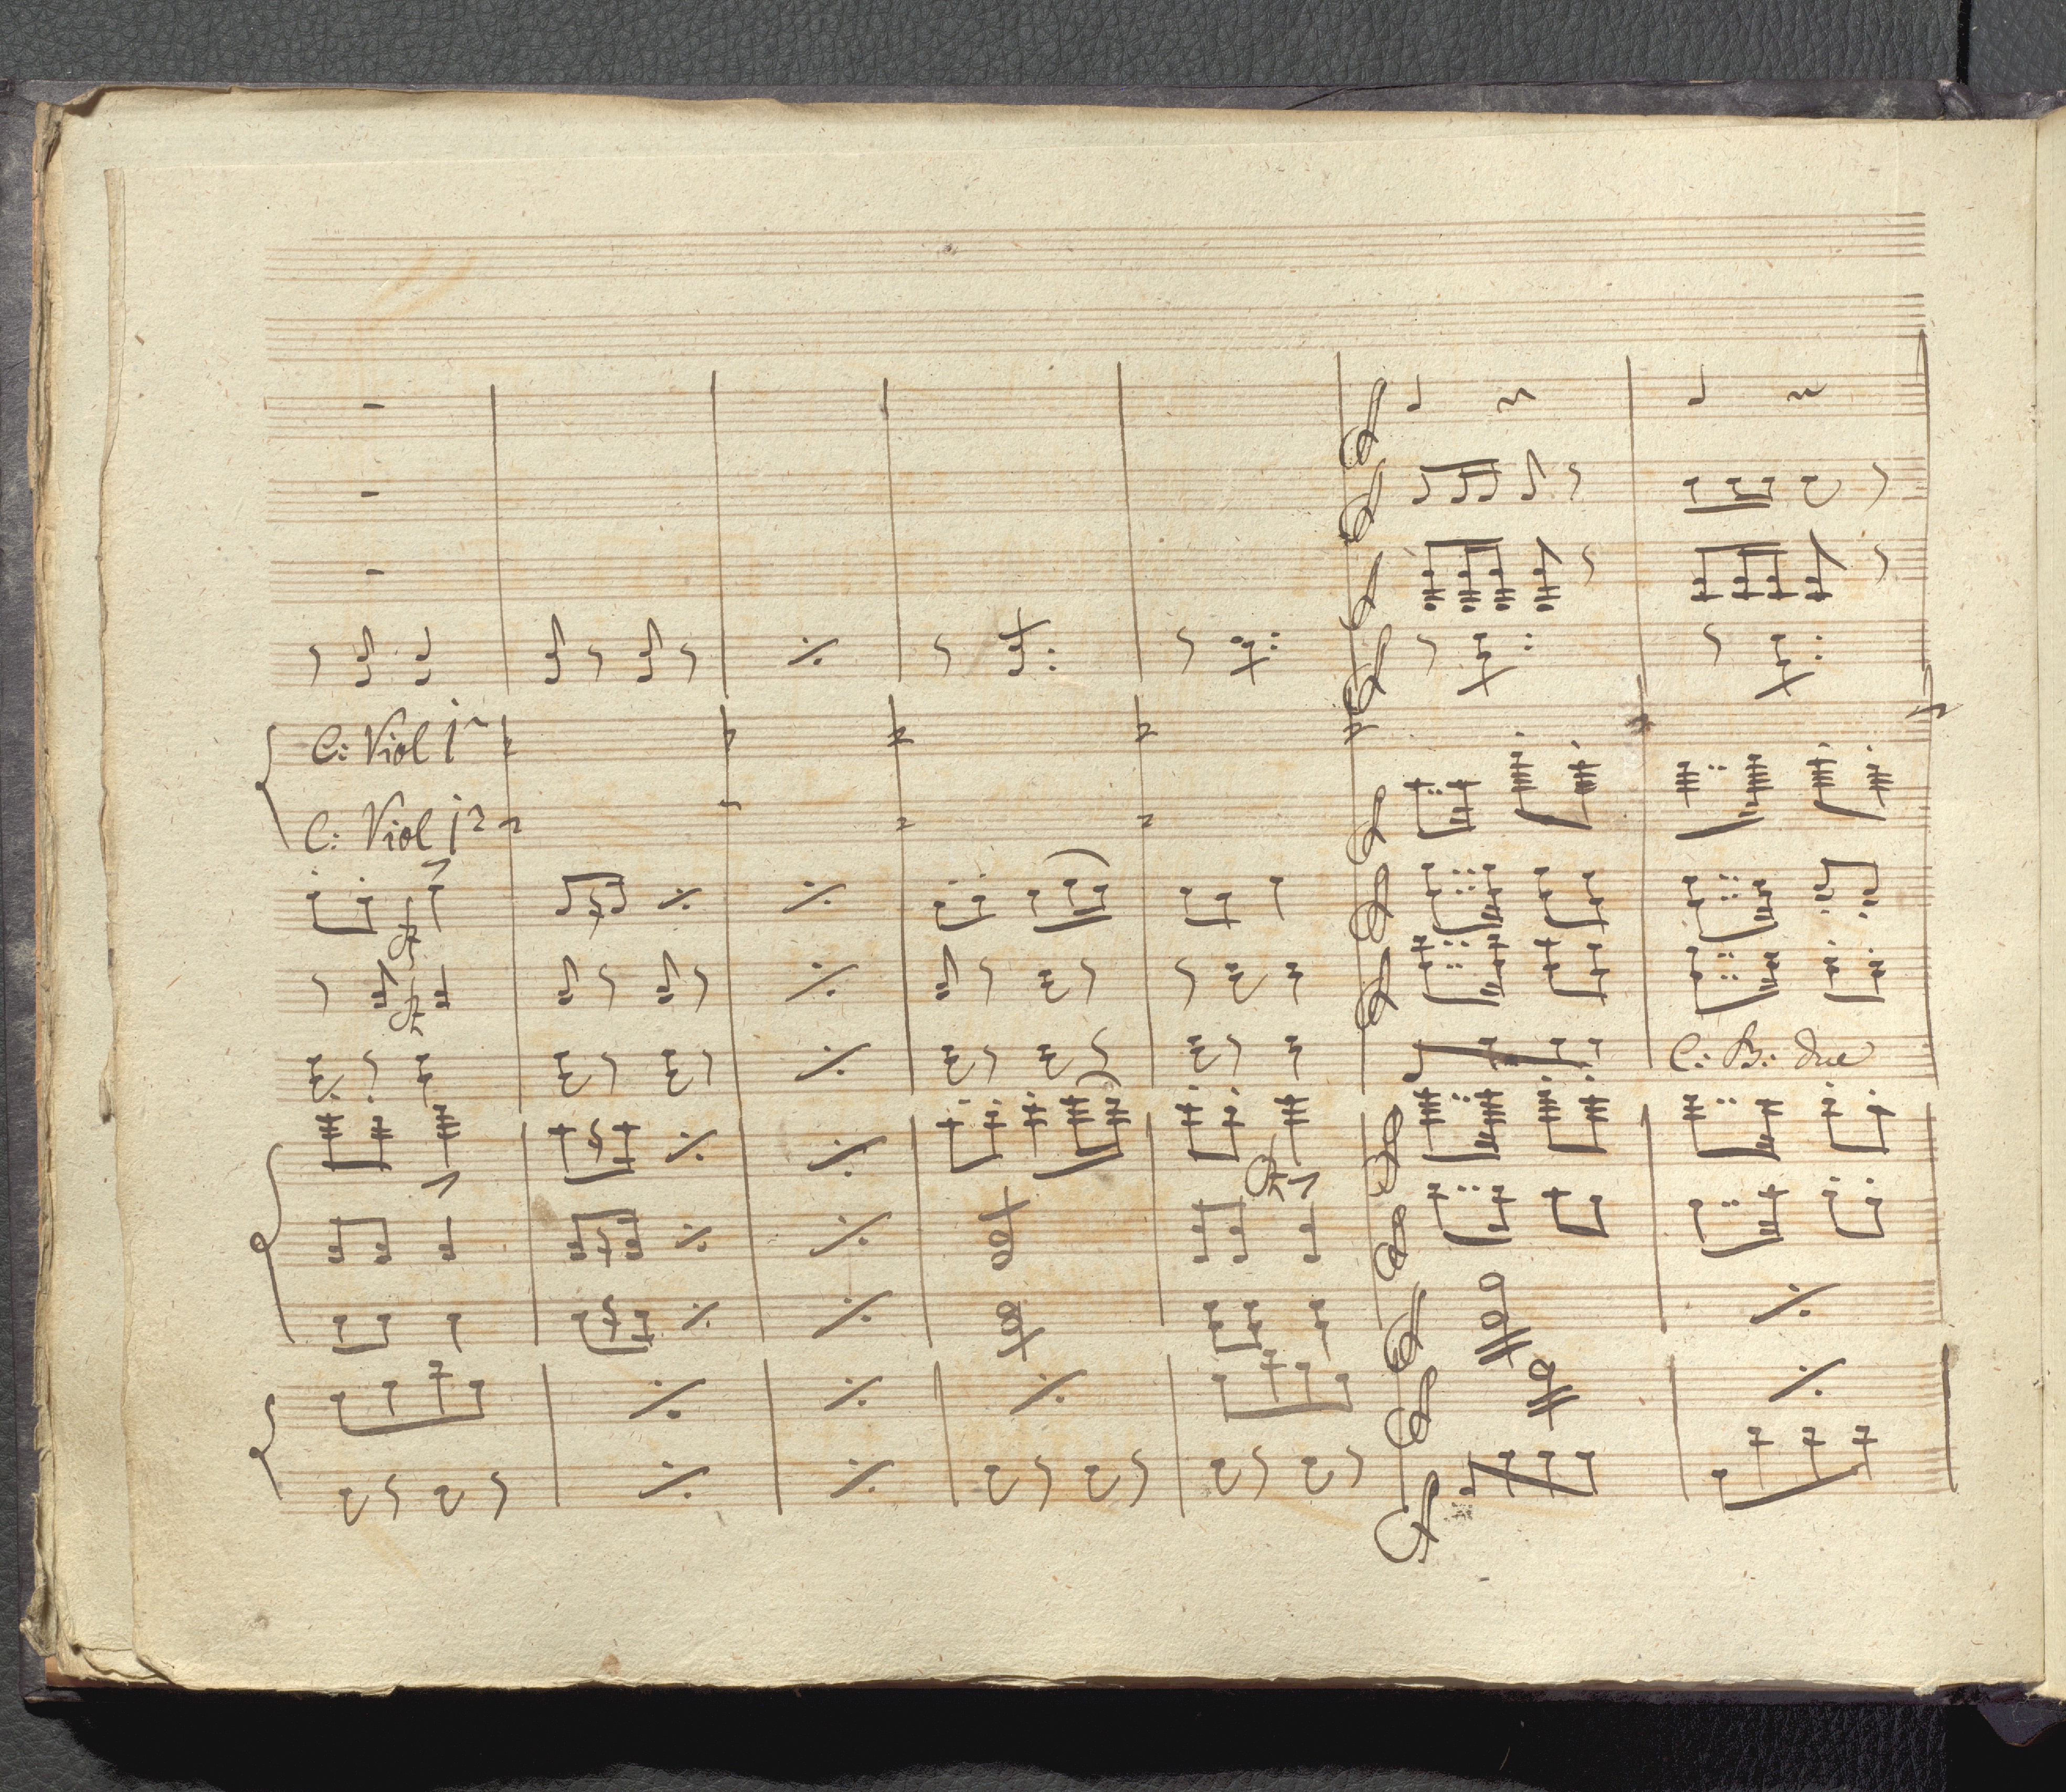 C: Viol 1º
C: Viol 1º
C: B: due